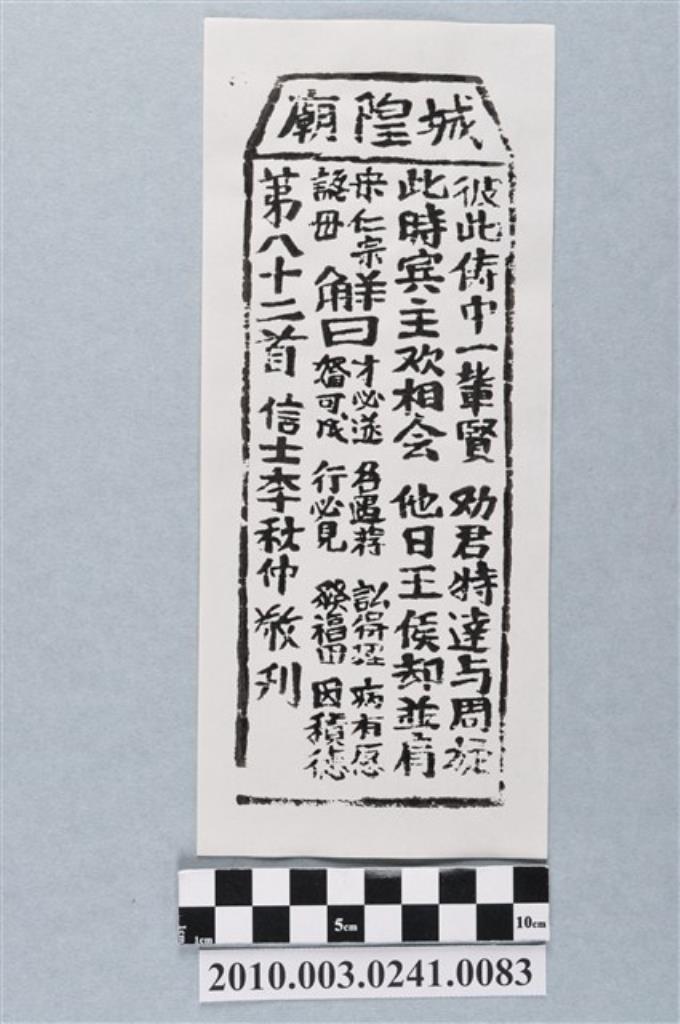 城隍廟
彼此儔中一輩賢 劝君特達与周旋
此時宾主欢相会 他日王侯却並肩
宋仁宗
認母
解曰
才必遂 名遇荐 訟得理 病有愿
婚可成 行必見 發福田 因積德
第八十二首 信士李秋仲敬刋
1cm 5cm 10cm
2010.003.0241.0083